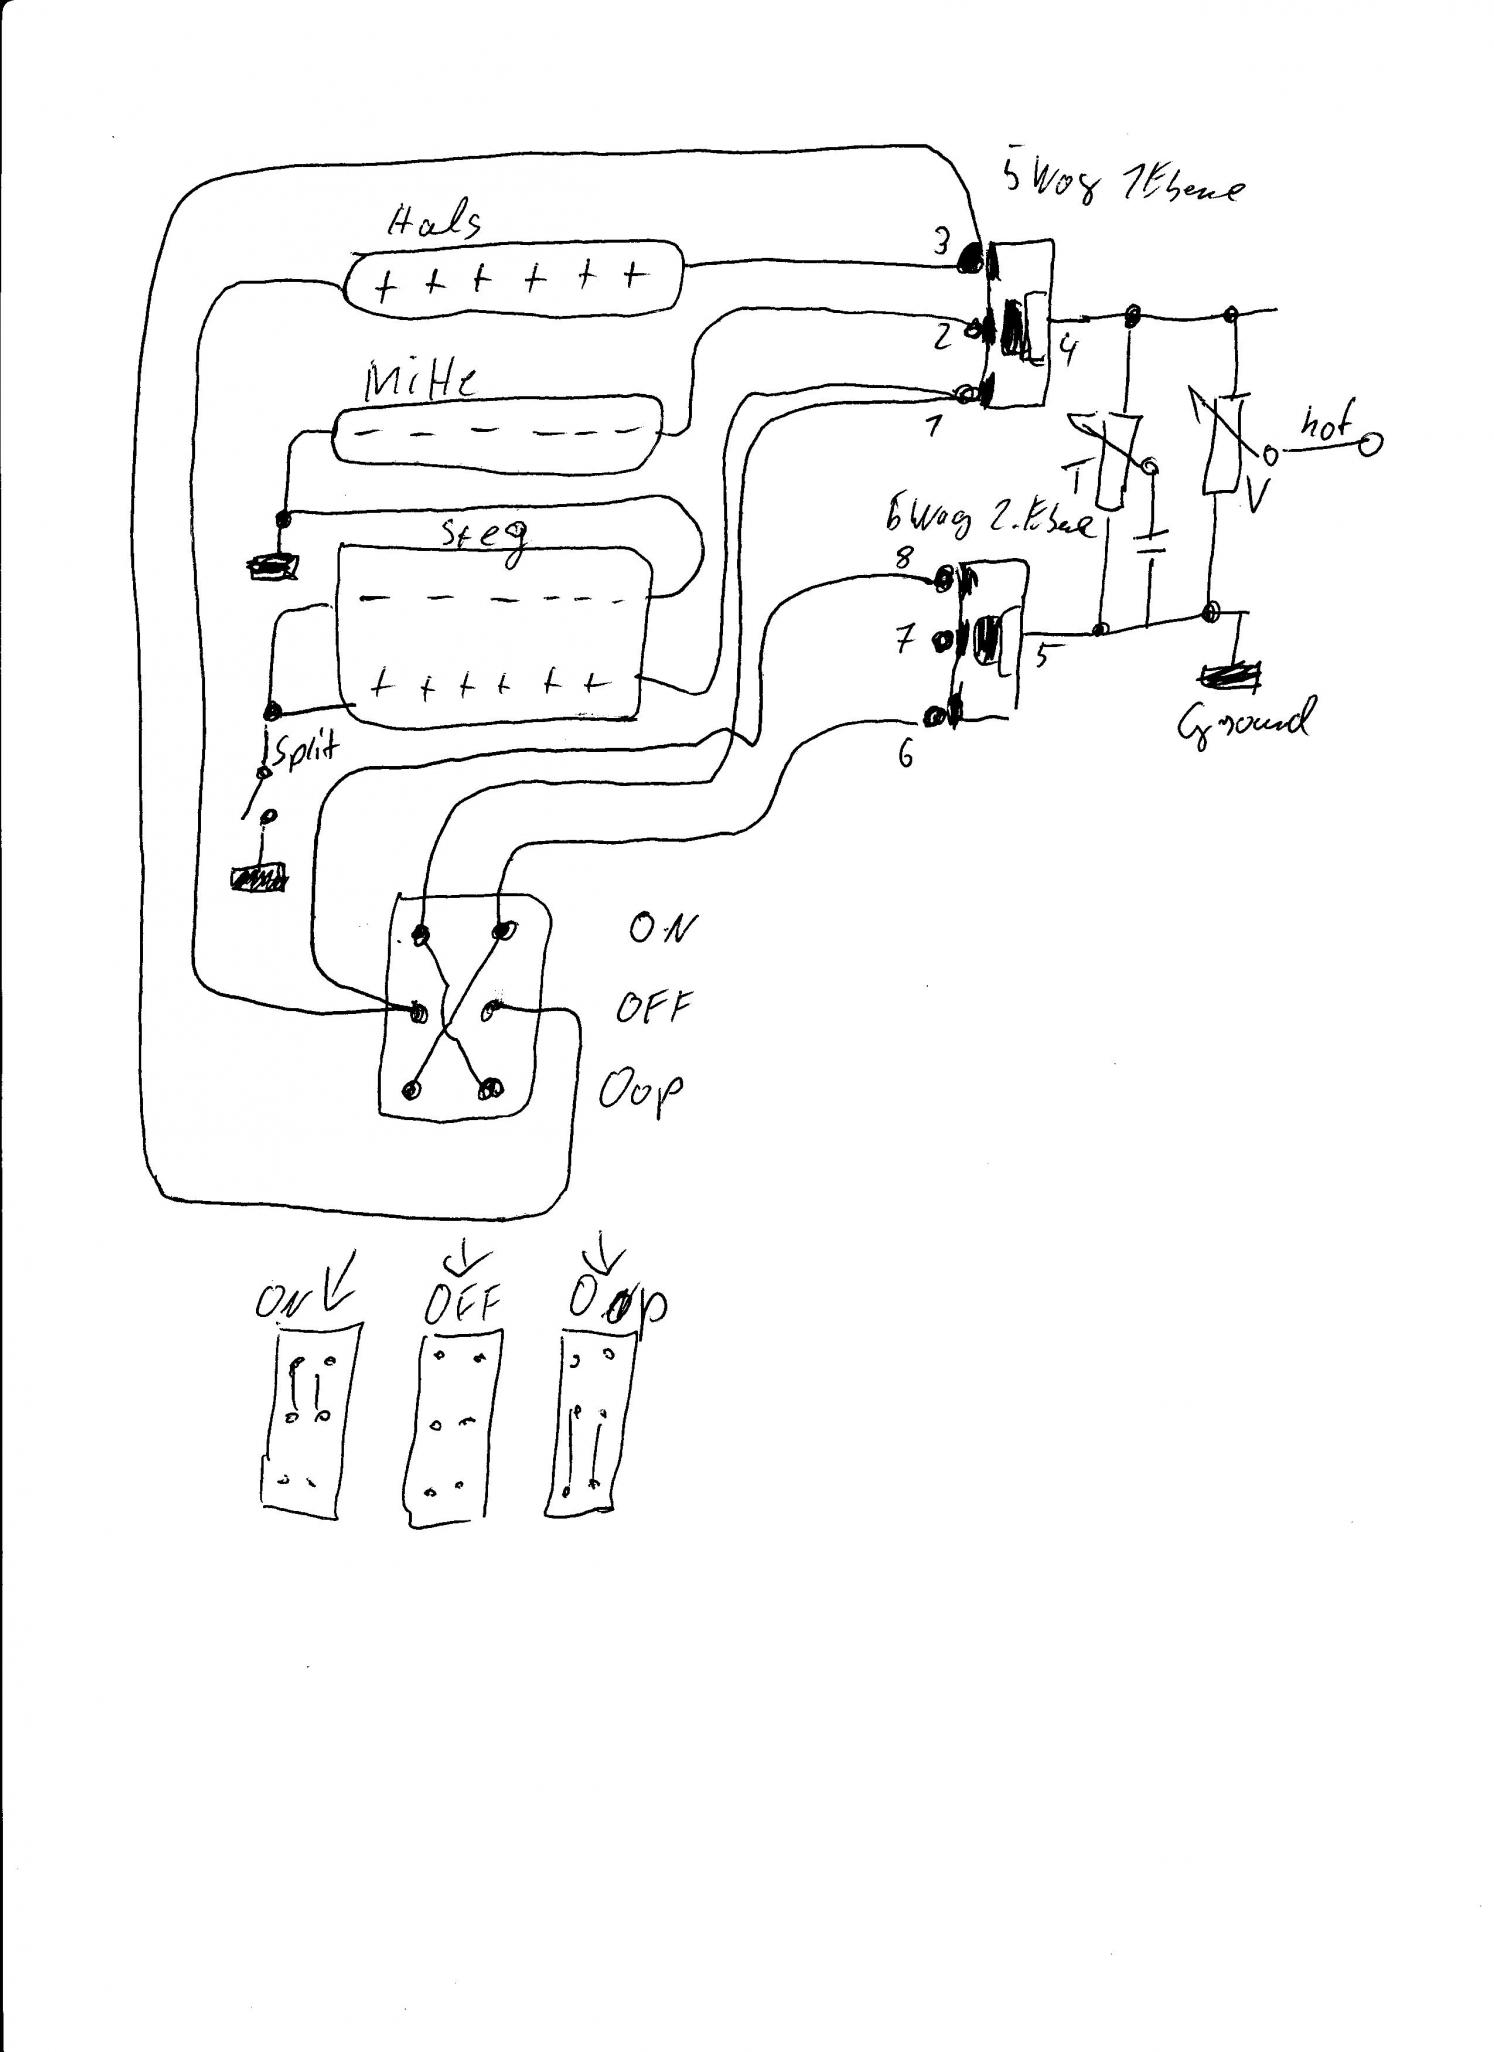 5 Weg 1 Ebene
Hals
+ + + + + +
3
2
4
1
Mitte
- - - - - -
hot
T
V
Steg
- - - - - -
+ + + + + +
5 Weg 2. Ebene
8
7
5
6
Ground
Split
ON
OFF
Oop
ON
OFF
Oop